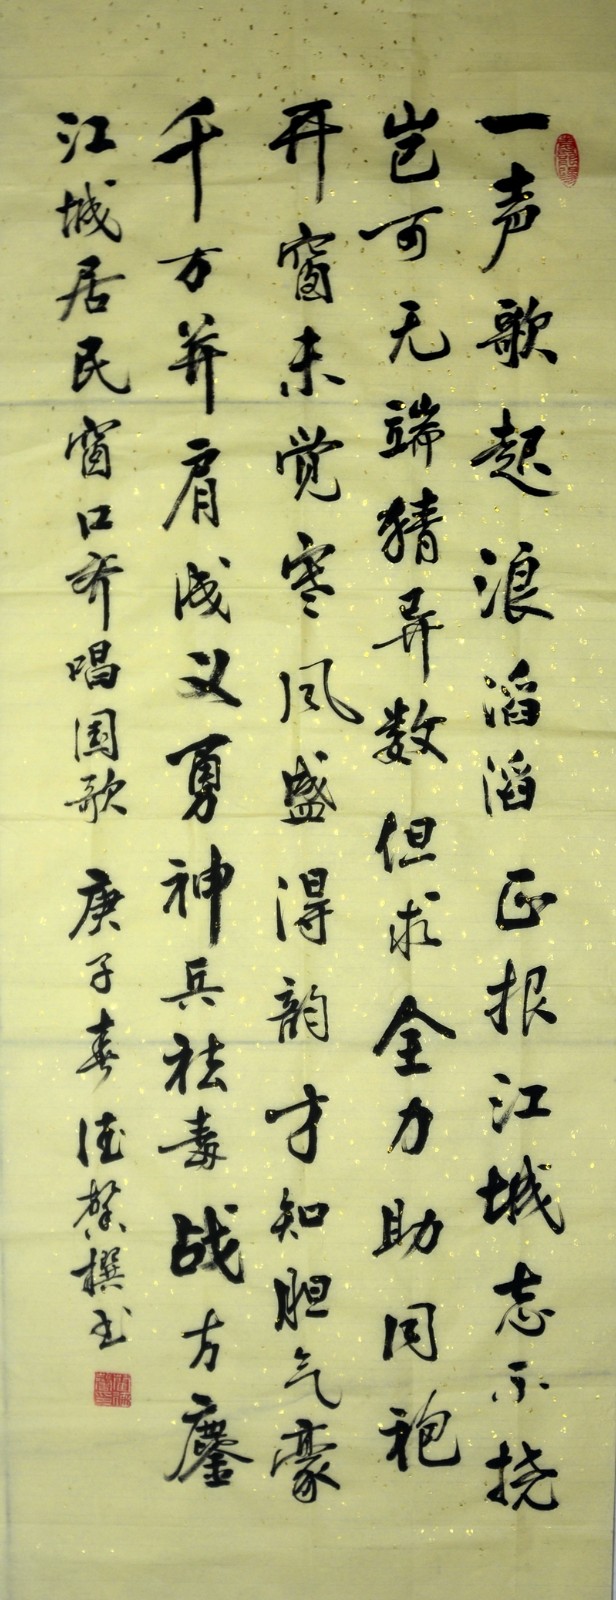 一声歌起浪滔滔正报江城志不挠
岂可无端猜异数但求全力助同袍
开窗未觉寒风盛得韵才知胆气豪
千万并肩成义勇神兵祛毒战方鏖
江城居民窗口齐唱国歌 庚子春 德馨撰书